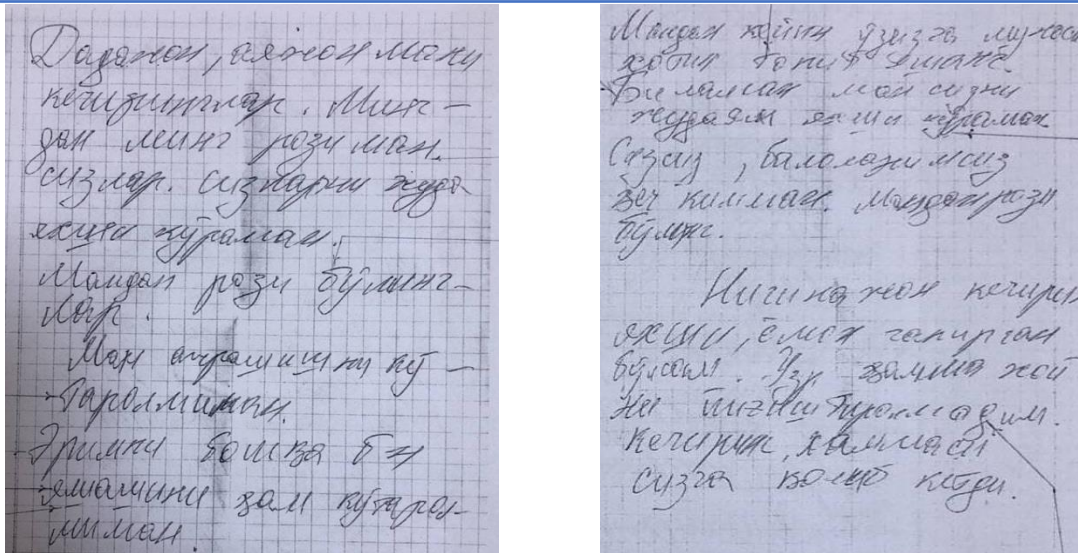 Дадажон, аяжон мани
кечиринглар. Минг-
дан минг розиман.
сизлар. Сизларни жуда
яхши кўраман.
Мандан рози бўлинг-
лар.
Ман ажрашишни кў-
таролмиман.
Эримни бошқа б-н
яшашини ҳам кўтарол-
миман.
Мандан кейин ўзизга
хотин топиб яшанг.
Биламан ман сизни
жудаям яхши кўраман
Сизсиз, болалажимсиз
ҳеч кимман. Мандан рози
бўлинг.
Нигинажон кечирин
яхши, ёмон гапирган
бўлсам. Узр ҳамма жой
ни йиғиштиролмадим.
Кечирин, ҳаммаси
сизга қолиб кетди.